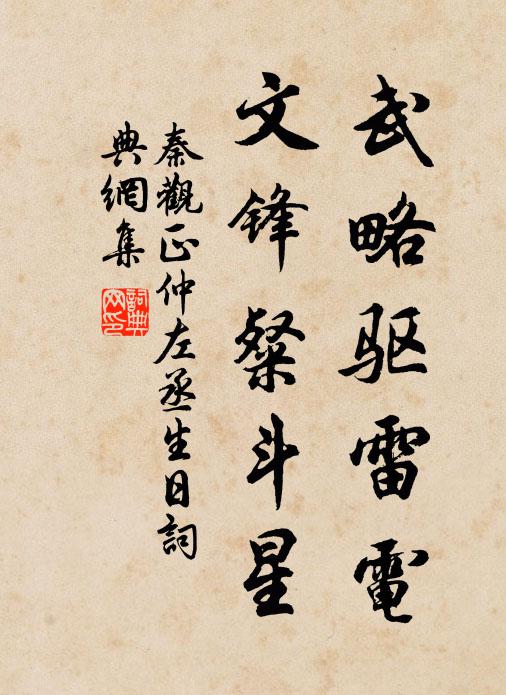 武略驱雷電
文锋粲斗星
秦觀正仲左丞生日詞
典網集
詞典网印